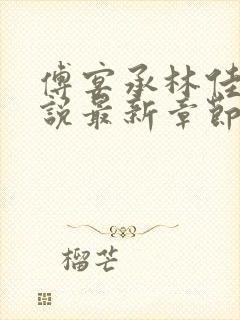 傅宴承林佳
說最新章節
榴芒